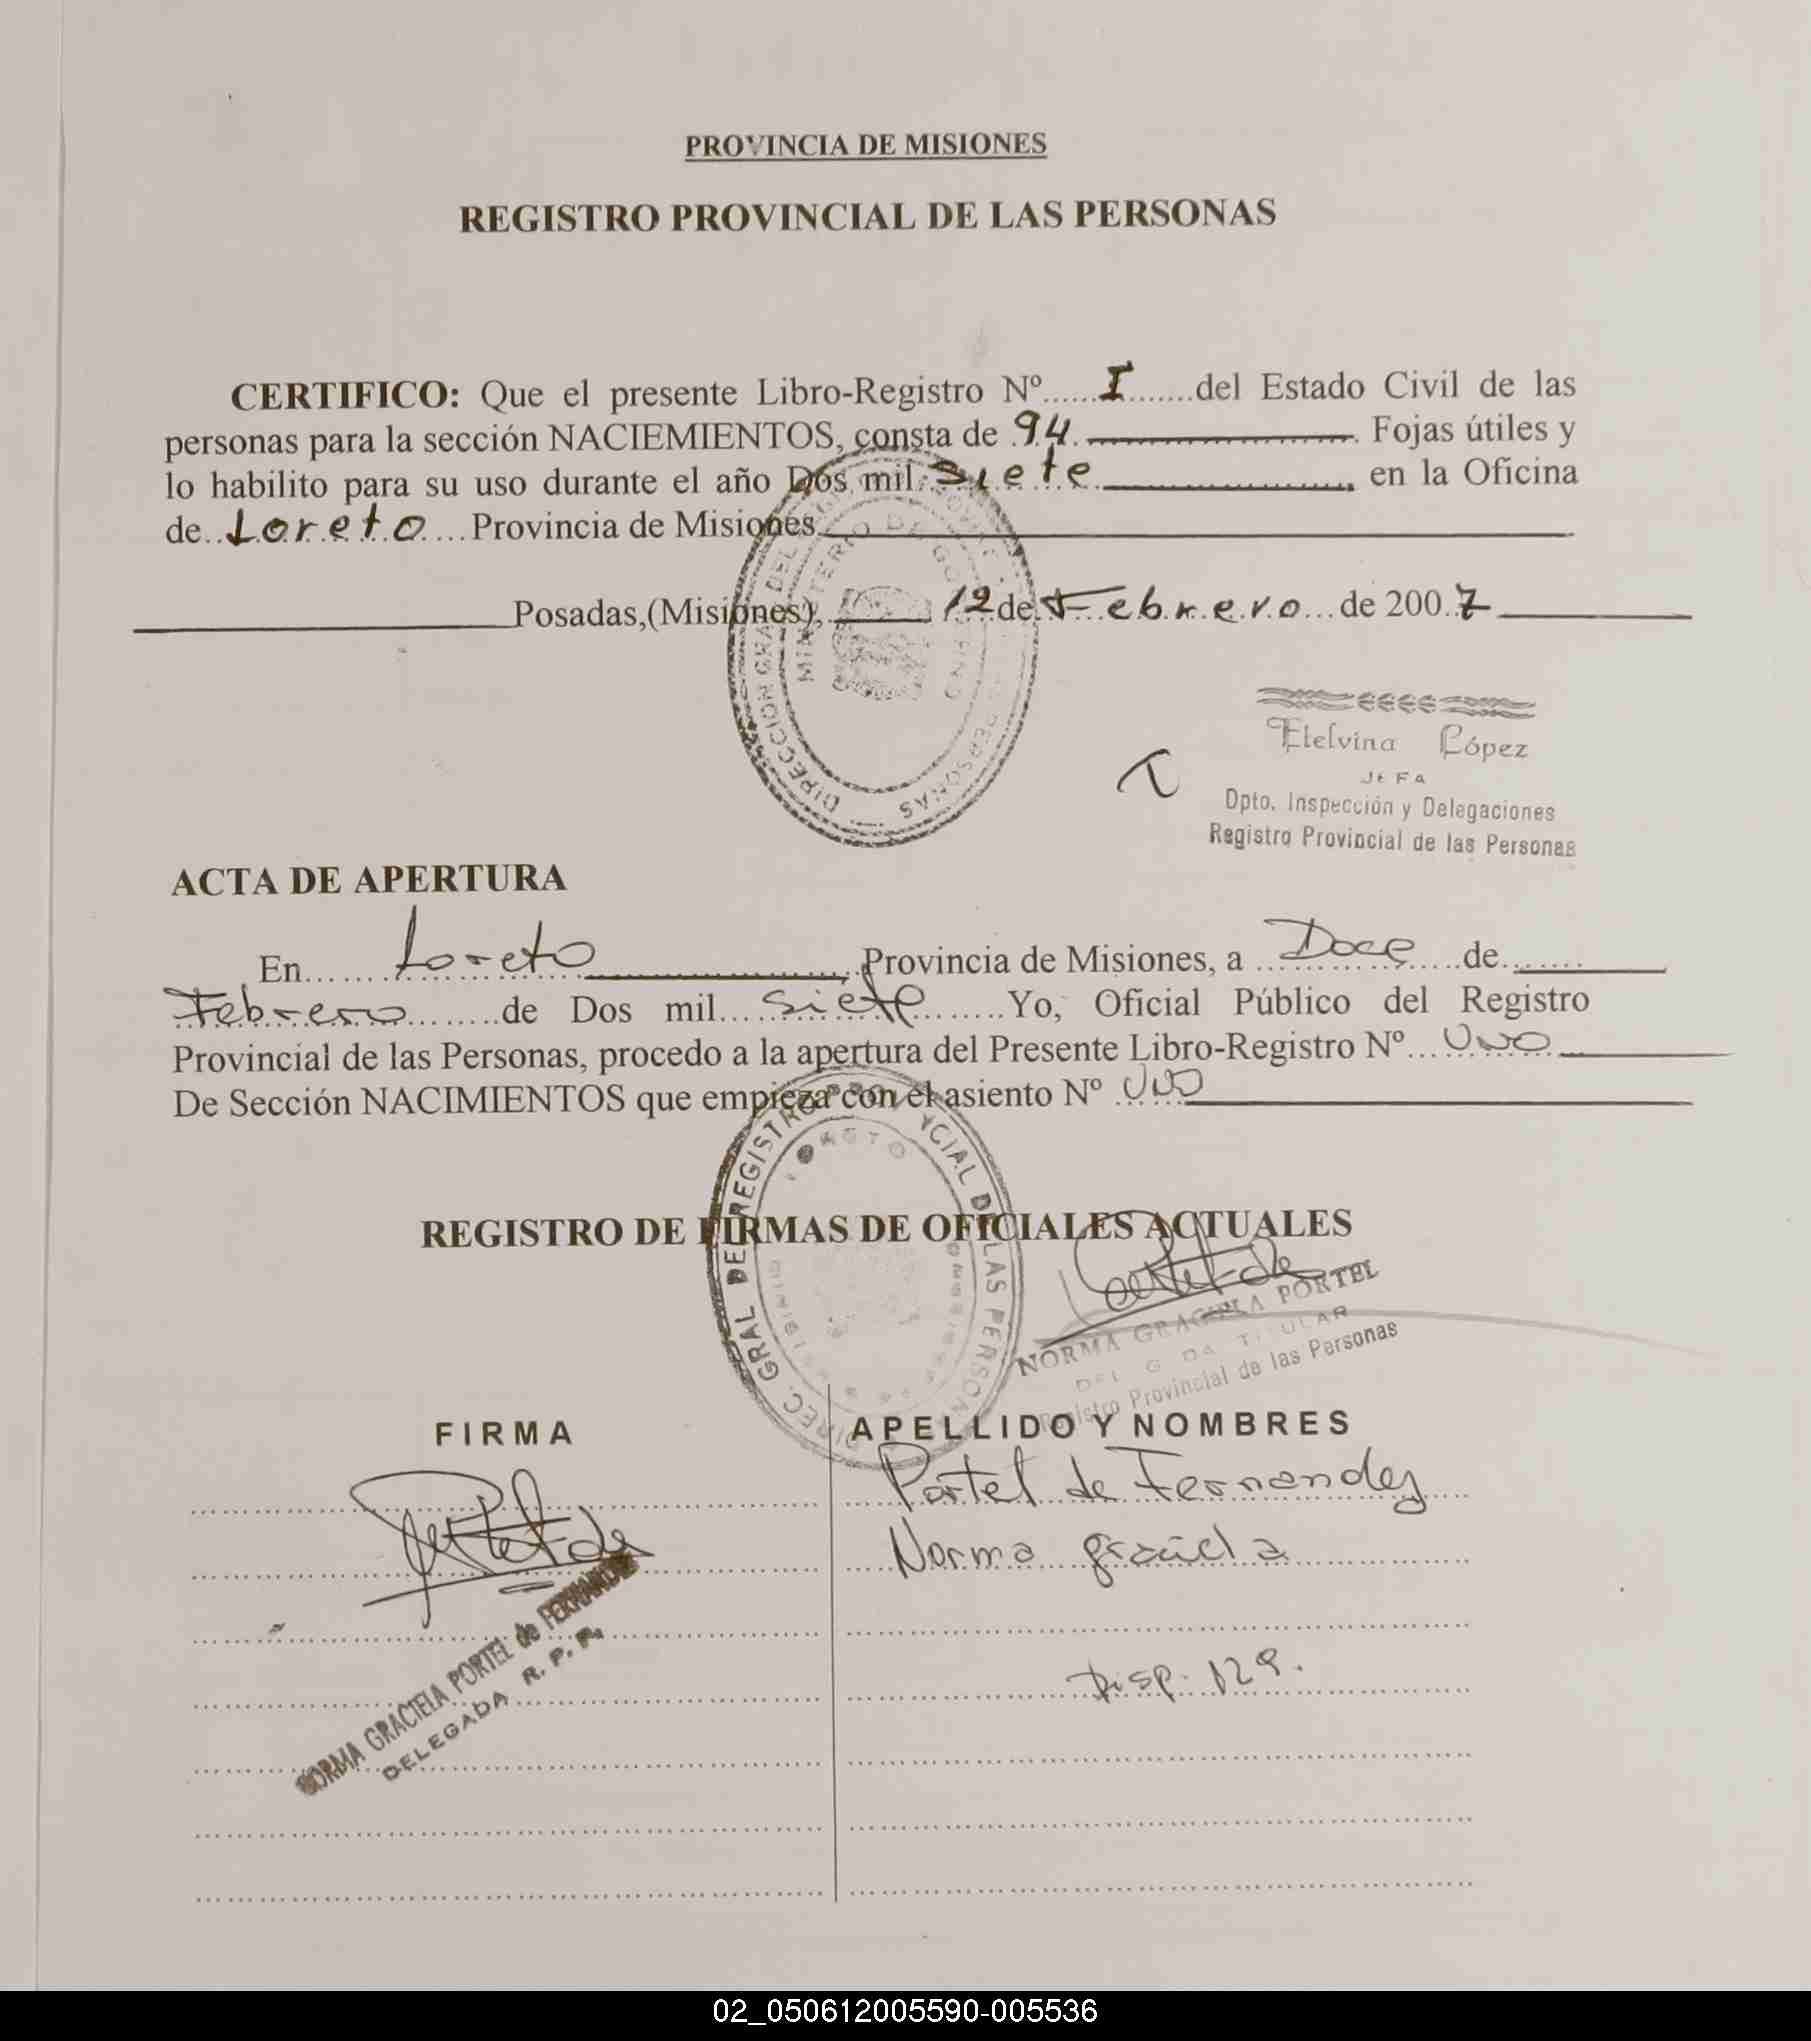 PROVINCIA DE MISIONES
REGISTRO PROVINCIAL DE LAS PERSONAS
CERTIFICO: Que el presente Libro-Registro Nº......I.......del Estado Civil de las
personas para la sección NACIEMIENTOS, consta de .94. Fojas útiles y
lo habilito para su uso durante el año Dos mil siete en la Oficina
de..Loreto....Provincia de Misiones
Posadas,(Misiones), 12 de Febrero...de 200.7
Etelvina López
JEFA
Dpto. Inspección y Delegaciones
Registro Provincial de las Personas
ACTA DE APERTURA
En.......Loreto Provincia de Misiones, a Doce de
Febrero de Dos mil siete Yo, Oficial Público del Registro
Provincial de las Personas, procedo a la apertura del Presente Libro-Registro Nº...uno
De Sección NACIMIENTOS que empieza con el asiento Nº uno
DIREC. GRAL DEL REGISTRO PROVINCIAL DE LAS PERSONAS
LORETO
REGISTRO DE FIRMAS DE OFICIALES ACTUALES
NORMA GRACIELA PORTEL
DELEGADA TITULAR
Registro Provincial de las Personas
FIRMA
APELLIDO Y NOMBRES
Portel de Fernandez
Norma graciela
NORMA GRACIELA PORTEL de FERNANDEZ
DELEGADA R. P. P.
Disp. 129.
02_050612005590-005536